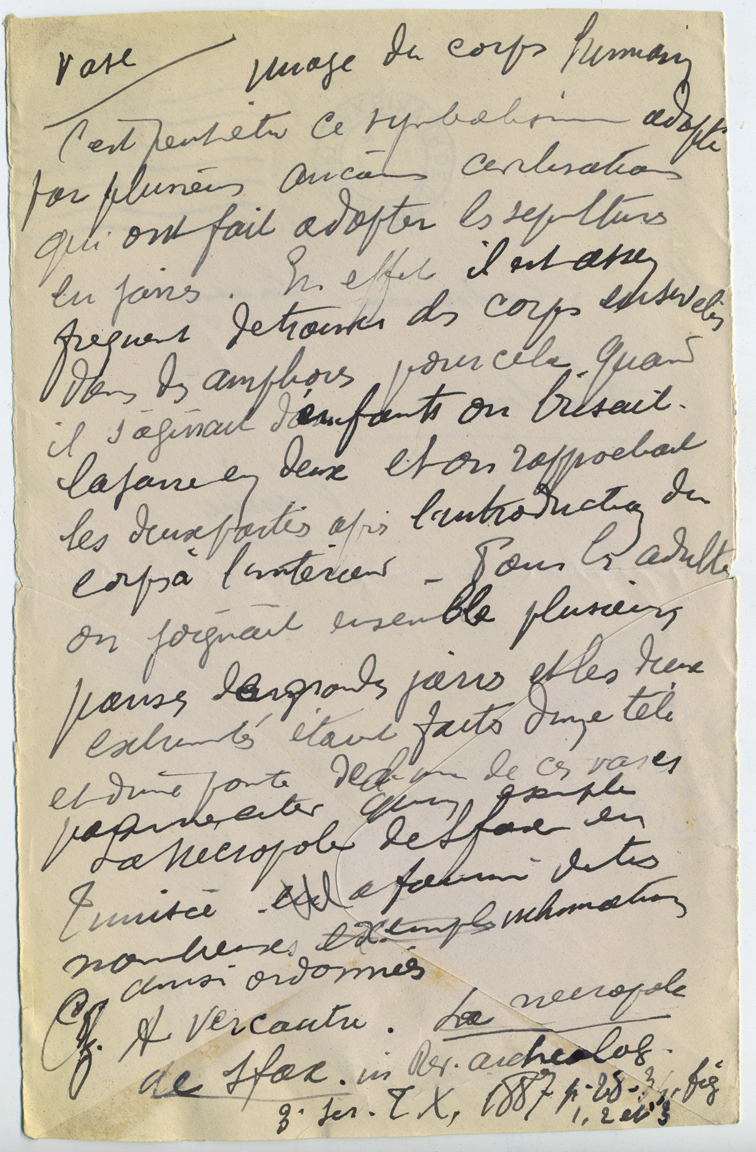 Vase image du corps humain
C'est peut être ce symbolisme adopté
par plusieurs anciens civilisations
qui ont fait adopter les sepultures
en jarres. En effet il est assez
frequent de trouver des corps ensevelis
dans des amphores pour cela quand
il s'agissait d'enfants on brisait
la jarre en deux et on rapprochait
les deux parties après l'introduction du
corps à l'intérieur _ Pour les adultes
on joignait ensemble plusieurs
panses de grandes jarres et les deux
extremités étant faits d'une tête
et d'une pointe de l'un de ces vases
pour ne citer qu'un exemple
La Necropole de Sfax en
Tunisie a fourni de très
nombreuses inhumations
ainsi ordonnées
Cf. A Vercoutre. La necropole
de Sfax. in Rev. archeolog.
3e ser. T X, 1887 p. 28- fig
1, 2 et 3